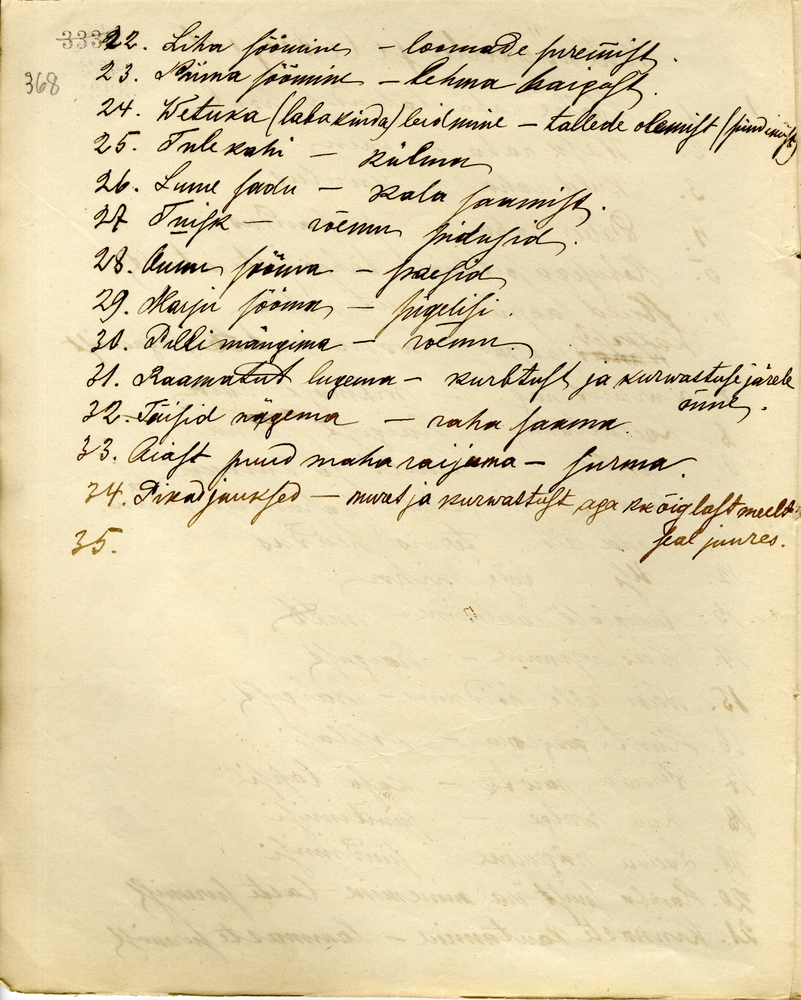 333
368
22. Liha söömine – loomade suremist.
23. Piima söömine – lehma haigust.
24. Wetuka (labakinda) leidmine – tallede olemist (sündimist)
25. Tulekahi – külma
26. Lume sadu – kala saamist.
27 Tuisk – rõemu pidusid.
28. Õunu sööma – paesid
29. Marju sööma – sügelisi.
30. Pilli mängima – rõemu.
31. Raamatut lugema – kurbtust ja kurwastuse järele
õnne.
32. Täisid nägema – raha saama.
33. Aiast puud maha raijuma – surma.
34. Pikad juuksed – muret ja kurwastust aga ka õiglast meelt
seal juures.
35.